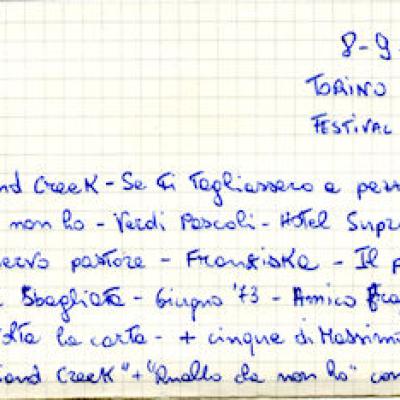 8-9-
TORINO
FESTIVAL
and Creek - Se ti Tagliassero a pezz
non ho - Verdi Pascoli - Hotel Supra
servo pastore - Franziska - Il p
Sbagliata - Giugno '73 - Amico Frag
olta la carta - + cinque di Massimo
Sand Creek" + "Quello che non ho" con